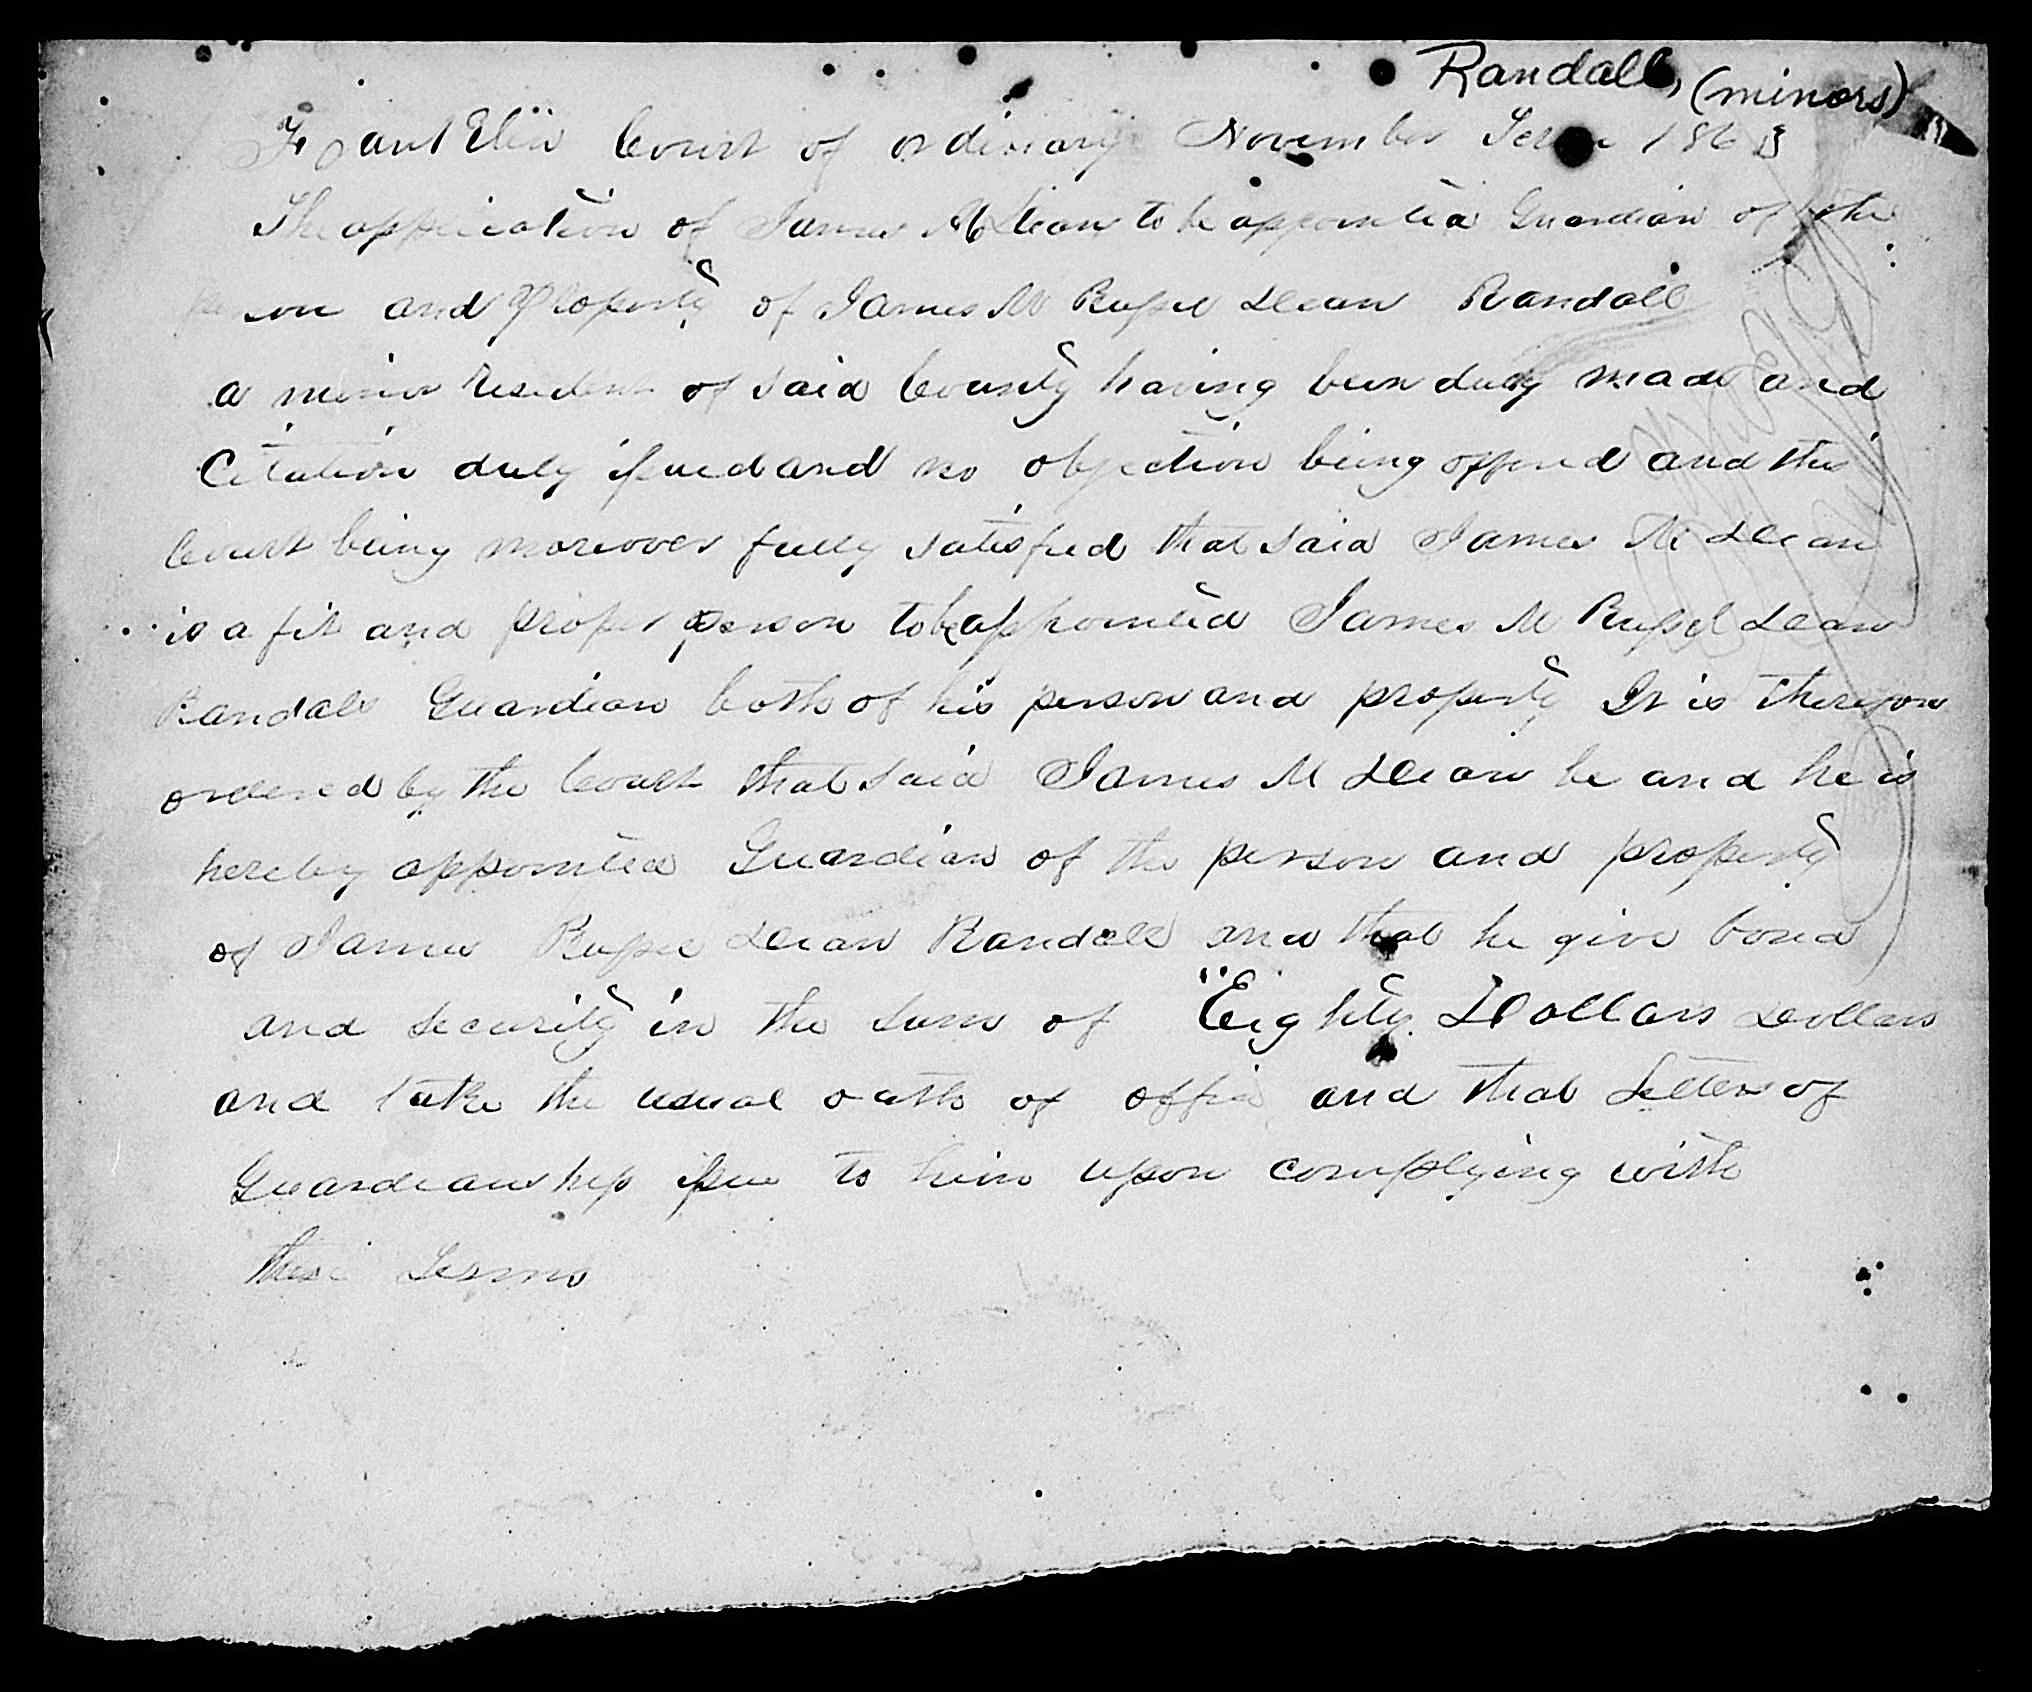 Randall, (minors)
Franklin Court of ordinary November Term 186
The application of James M Dean to be appointed Guardian of the
person and Property of James M Russel Dean Randall
a minor resident of said County having been duly made and
Citation duly issued and no objection being offered and this
Court being moreover fully satisfied that said James M Dean
is a fit and proper person to be appointed James M Russel Dean
Randall Guardian both of his person and property It is thereupon
ordered by the Court that said James M Dean be and he is
hereby appointed Guardian of the person and property
of James Russel Dean Randall and that he give bond
and security in the sum of "Eighty Dollars Dollars
and take the usual oath of office and that Letters of
Guardianship issue to him upon complying with
these Terms